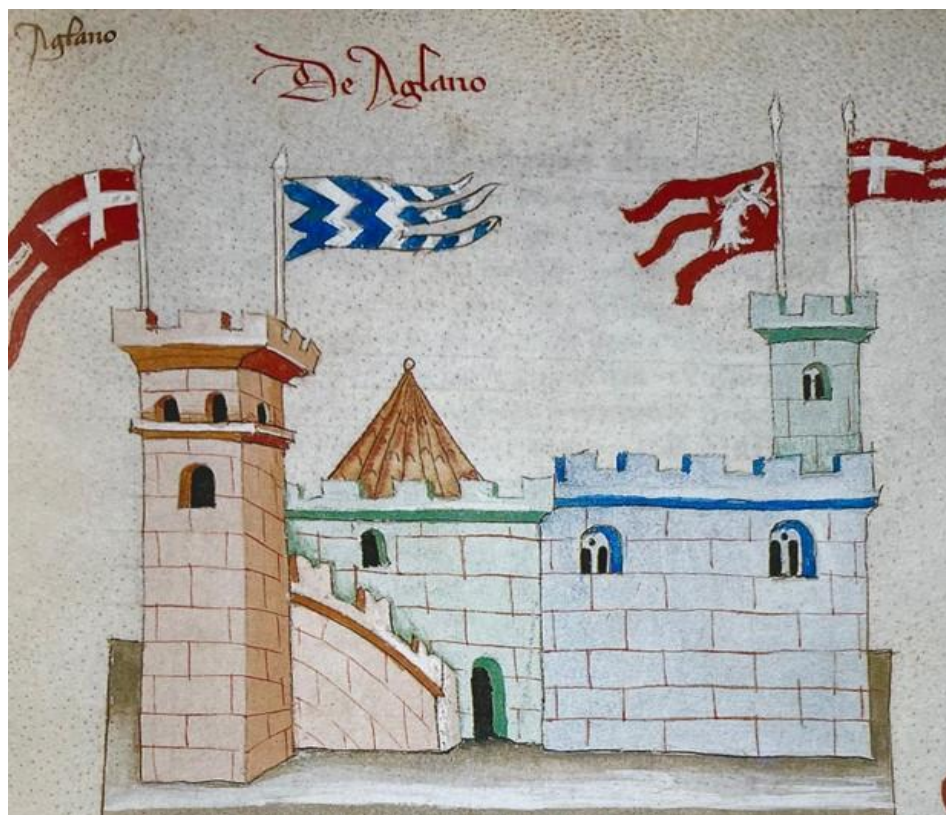 Aglano
De Aglano